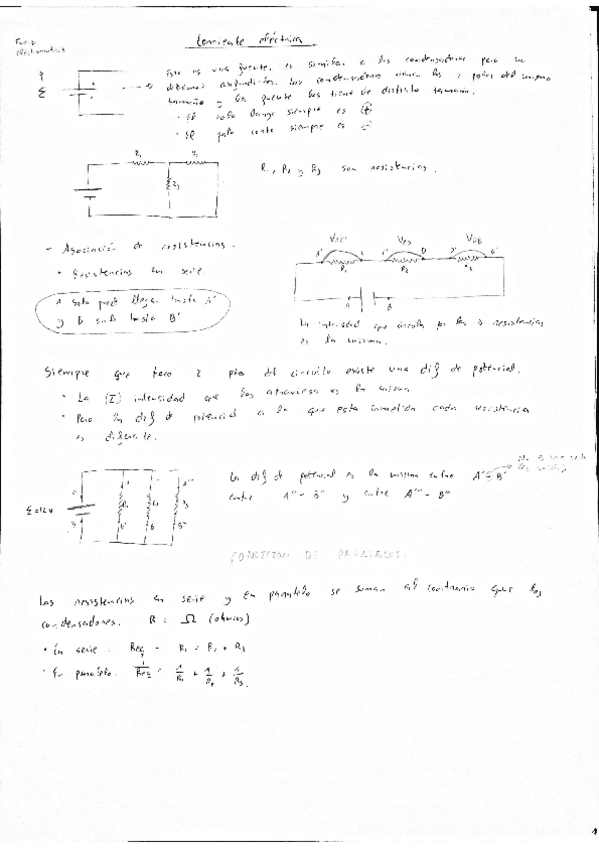 Corriente eléctrica
Fuerza
electromotriz
Esto es una fuente, es similar a los condensadores pero no
debemos confundirlos. Los condensadores tienen los 2 polos del mismo
tamaño y la fuente los tiene de distinto tamaño.
• El palo largo siempre es ⊕
• El palo corto siempre es ⊖
R₁ R₂
R₃
R₁, R₂ y R₃ son resistencias.
- Asociación de resistencias.
• Resistencias en serie
A solo puede llegar hasta A'
y B solo hasta B'
R₁ R₂ R₃
A B
La intensidad que circula por las 3 resistencias
es la misma.
Siempre que toco 2 ptos del circuito existe una dif de potencial.
• La (I) intensidad que los atraviesa es la misma
• Pero la dif de potencial a la que está sometida cada resistencia
es diferente.
ε=12V
La dif de potencial es la misma entre A' y B'
entre A'' - B'' y entre A''' - B'''
CONEXION DE PARALELOS.
Las resistencias en serie y en paralelo se suman al contrario que los
condensadores. R = Ω (ohmios)
• En serie: Req = R₁ + R₂ + R₃
• En paralelo: 1/Req = 1/R₁ + 1/R₂ + 1/R₃.